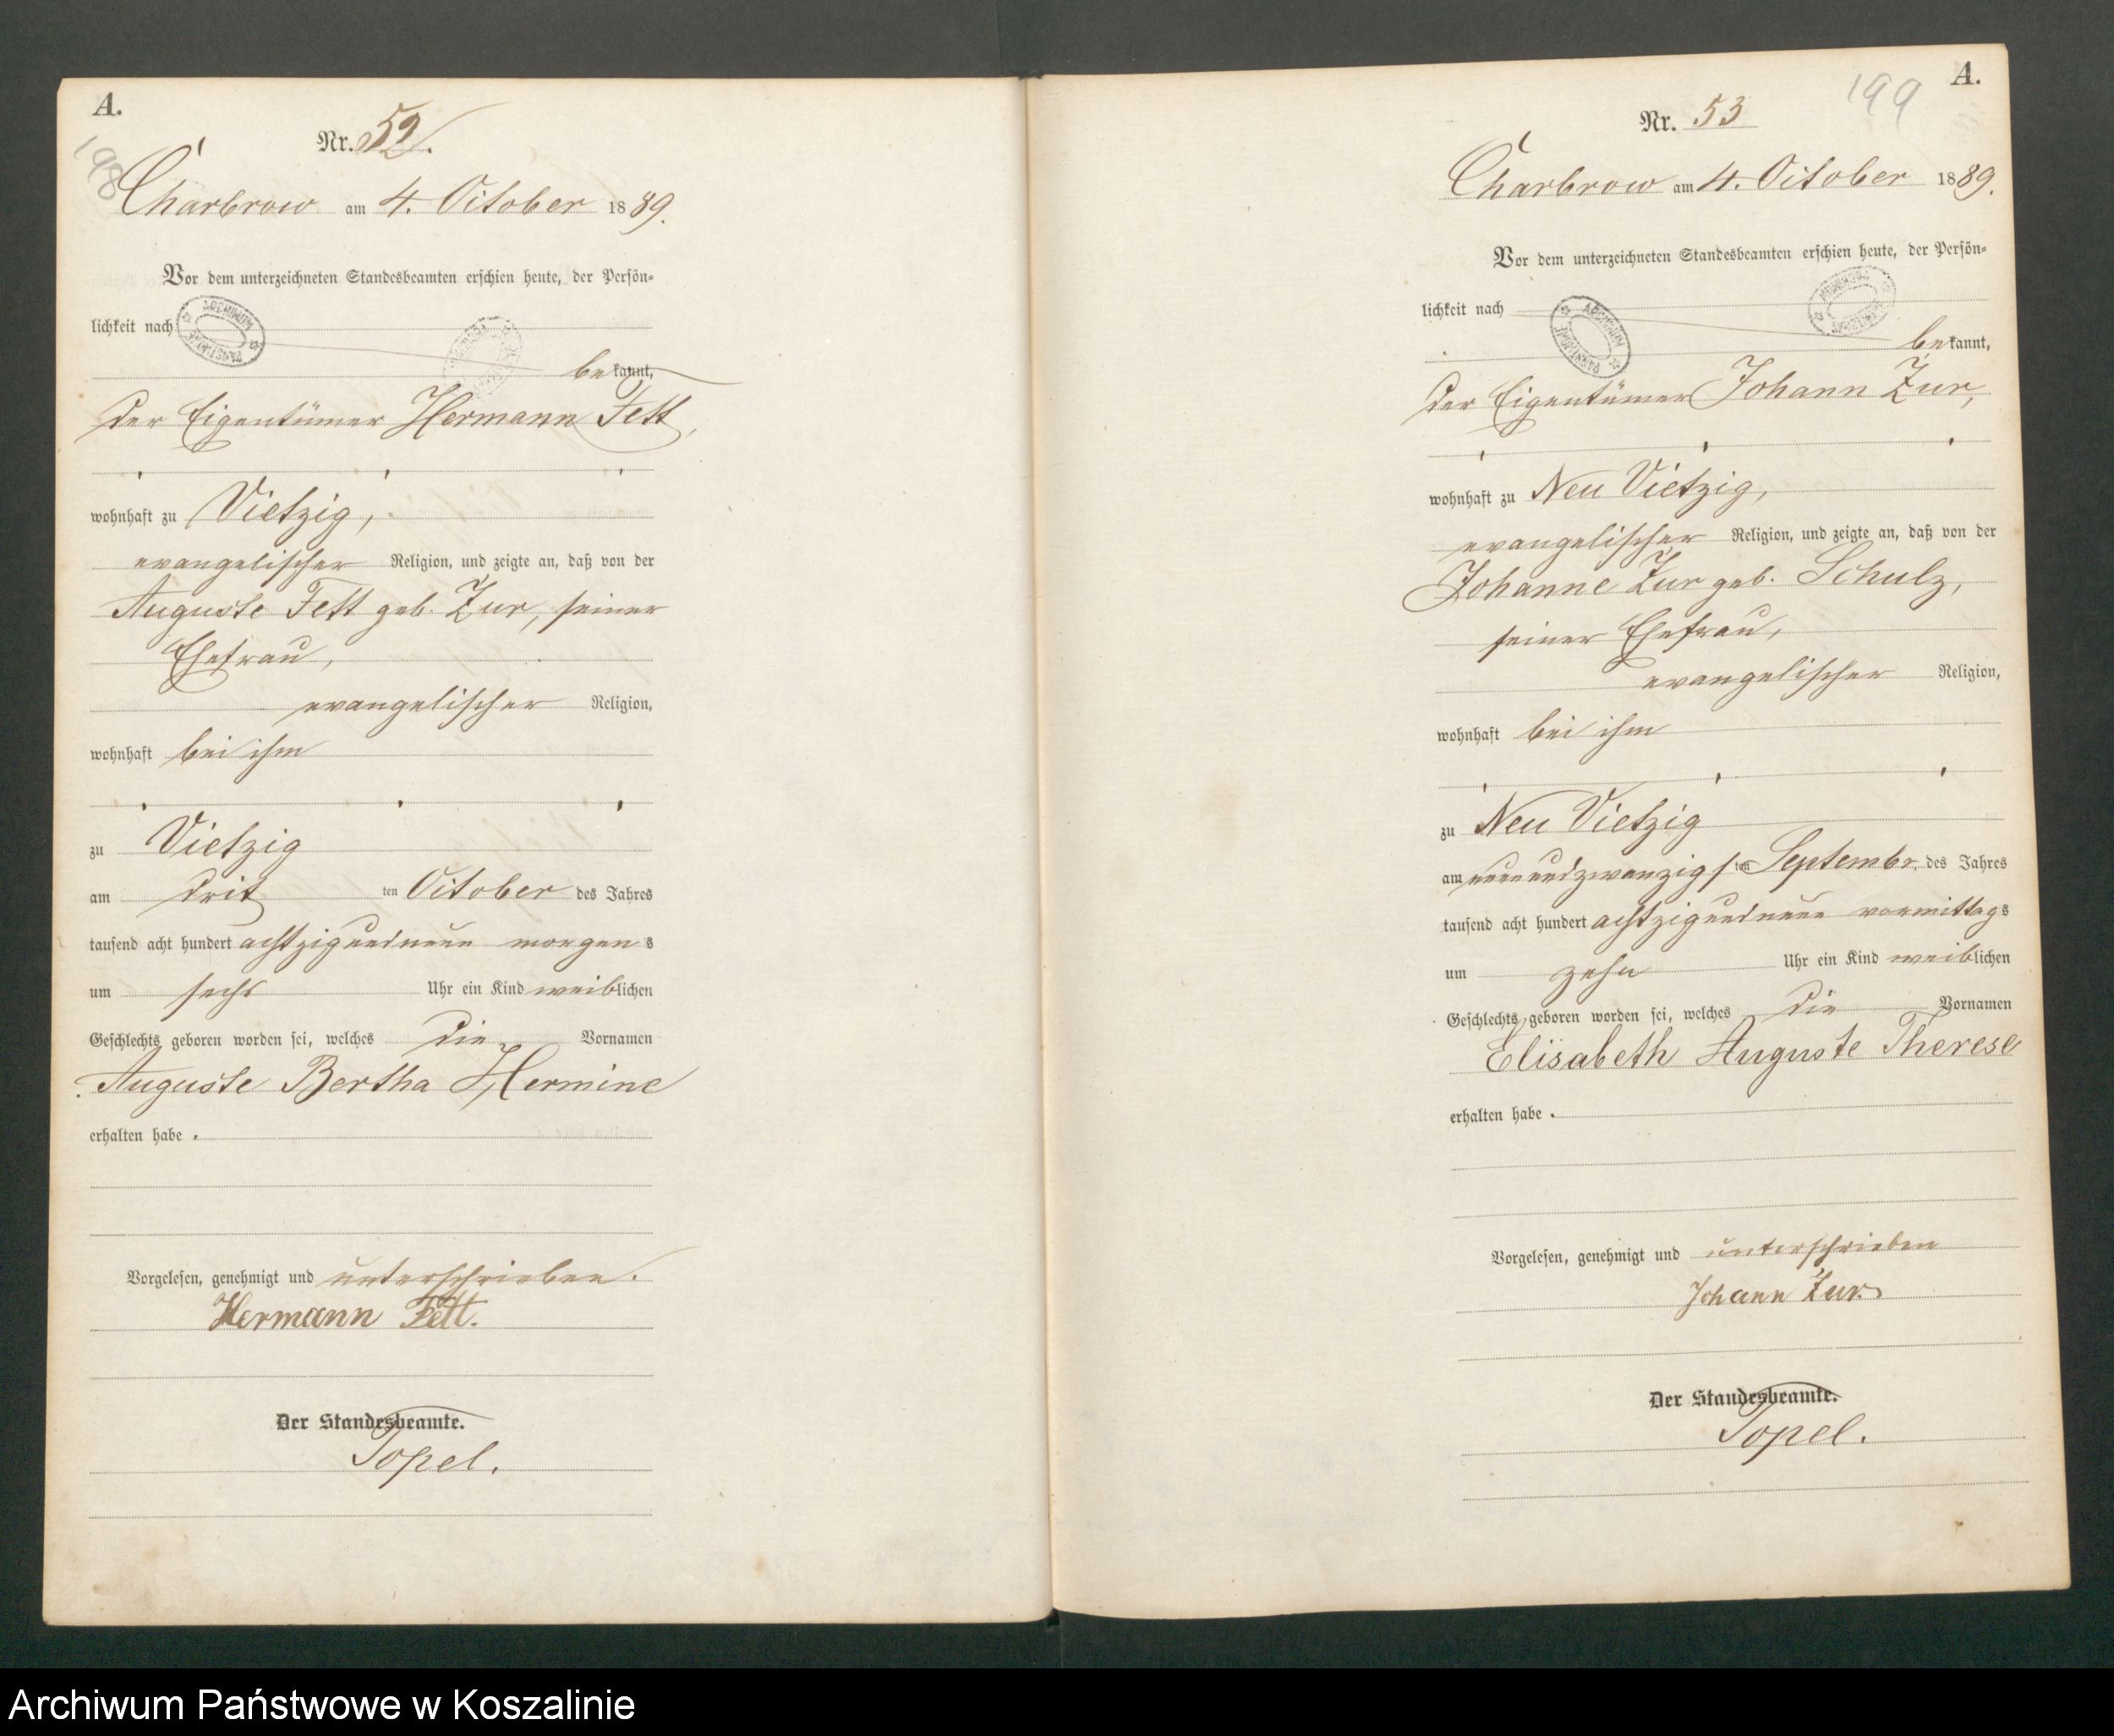 A.
198
Nr. 52.
Charbrow am 4. October 1889.
Vor dem unterzeichneten Standesbeamten erschien heute, der Persön-
lichkeit nach
bekannt,
der Eigentümer Hermann Fett,
wohnhaft zu Vietzig,
evangelischer Religion, und zeigte an, daß von der
Auguste Fett geb. Zur, seiner
Ehefrau,
evangelischer Religion,
wohnhaft bei ihm
zu Vietzig
am dritten October des Jahres
tausend acht hundert achtzigundneun morgens
um sechs Uhr ein Kind weiblichen
Geschlechts geboren worden sei, welches die Vornamen
Auguste Bertha Hermine
erhalten habe.
Vorgelesen, genehmigt und unterschrieben.
Hermann Fett.
Der Standesbeamte.
Topel.
A.
199
Nr. 53
Charbrow am 4. October 1889.
Vor dem unterzeichneten Standesbeamten erschien heute, der Persön-
lichkeit nach
ARCHIWUM PAŃSTWOWE
bekannt,
der Eigentümer Johann Zur,
wohnhaft zu Neu Vietzig,
evangelischer Religion, und zeigte an, daß von der
Johanne Zur geb. Schulz,
seiner Ehefrau,
evangelischer Religion,
wohnhaft bei ihm
zu Neu Vietzig
am neunundzwanzigsten Septembr. des Jahres
tausend acht hundert achtzigundneun vormittags
um zehn Uhr ein Kind weiblichen
Geschlechts geboren worden sei, welches die Vornamen
Elisabeth Auguste Therese
erhalten habe.
Vorgelesen, genehmigt und unterschrieben
Johann Zur.
Der Standesbeamte.
Topel.
Archiwum Państwowe w Koszalinie